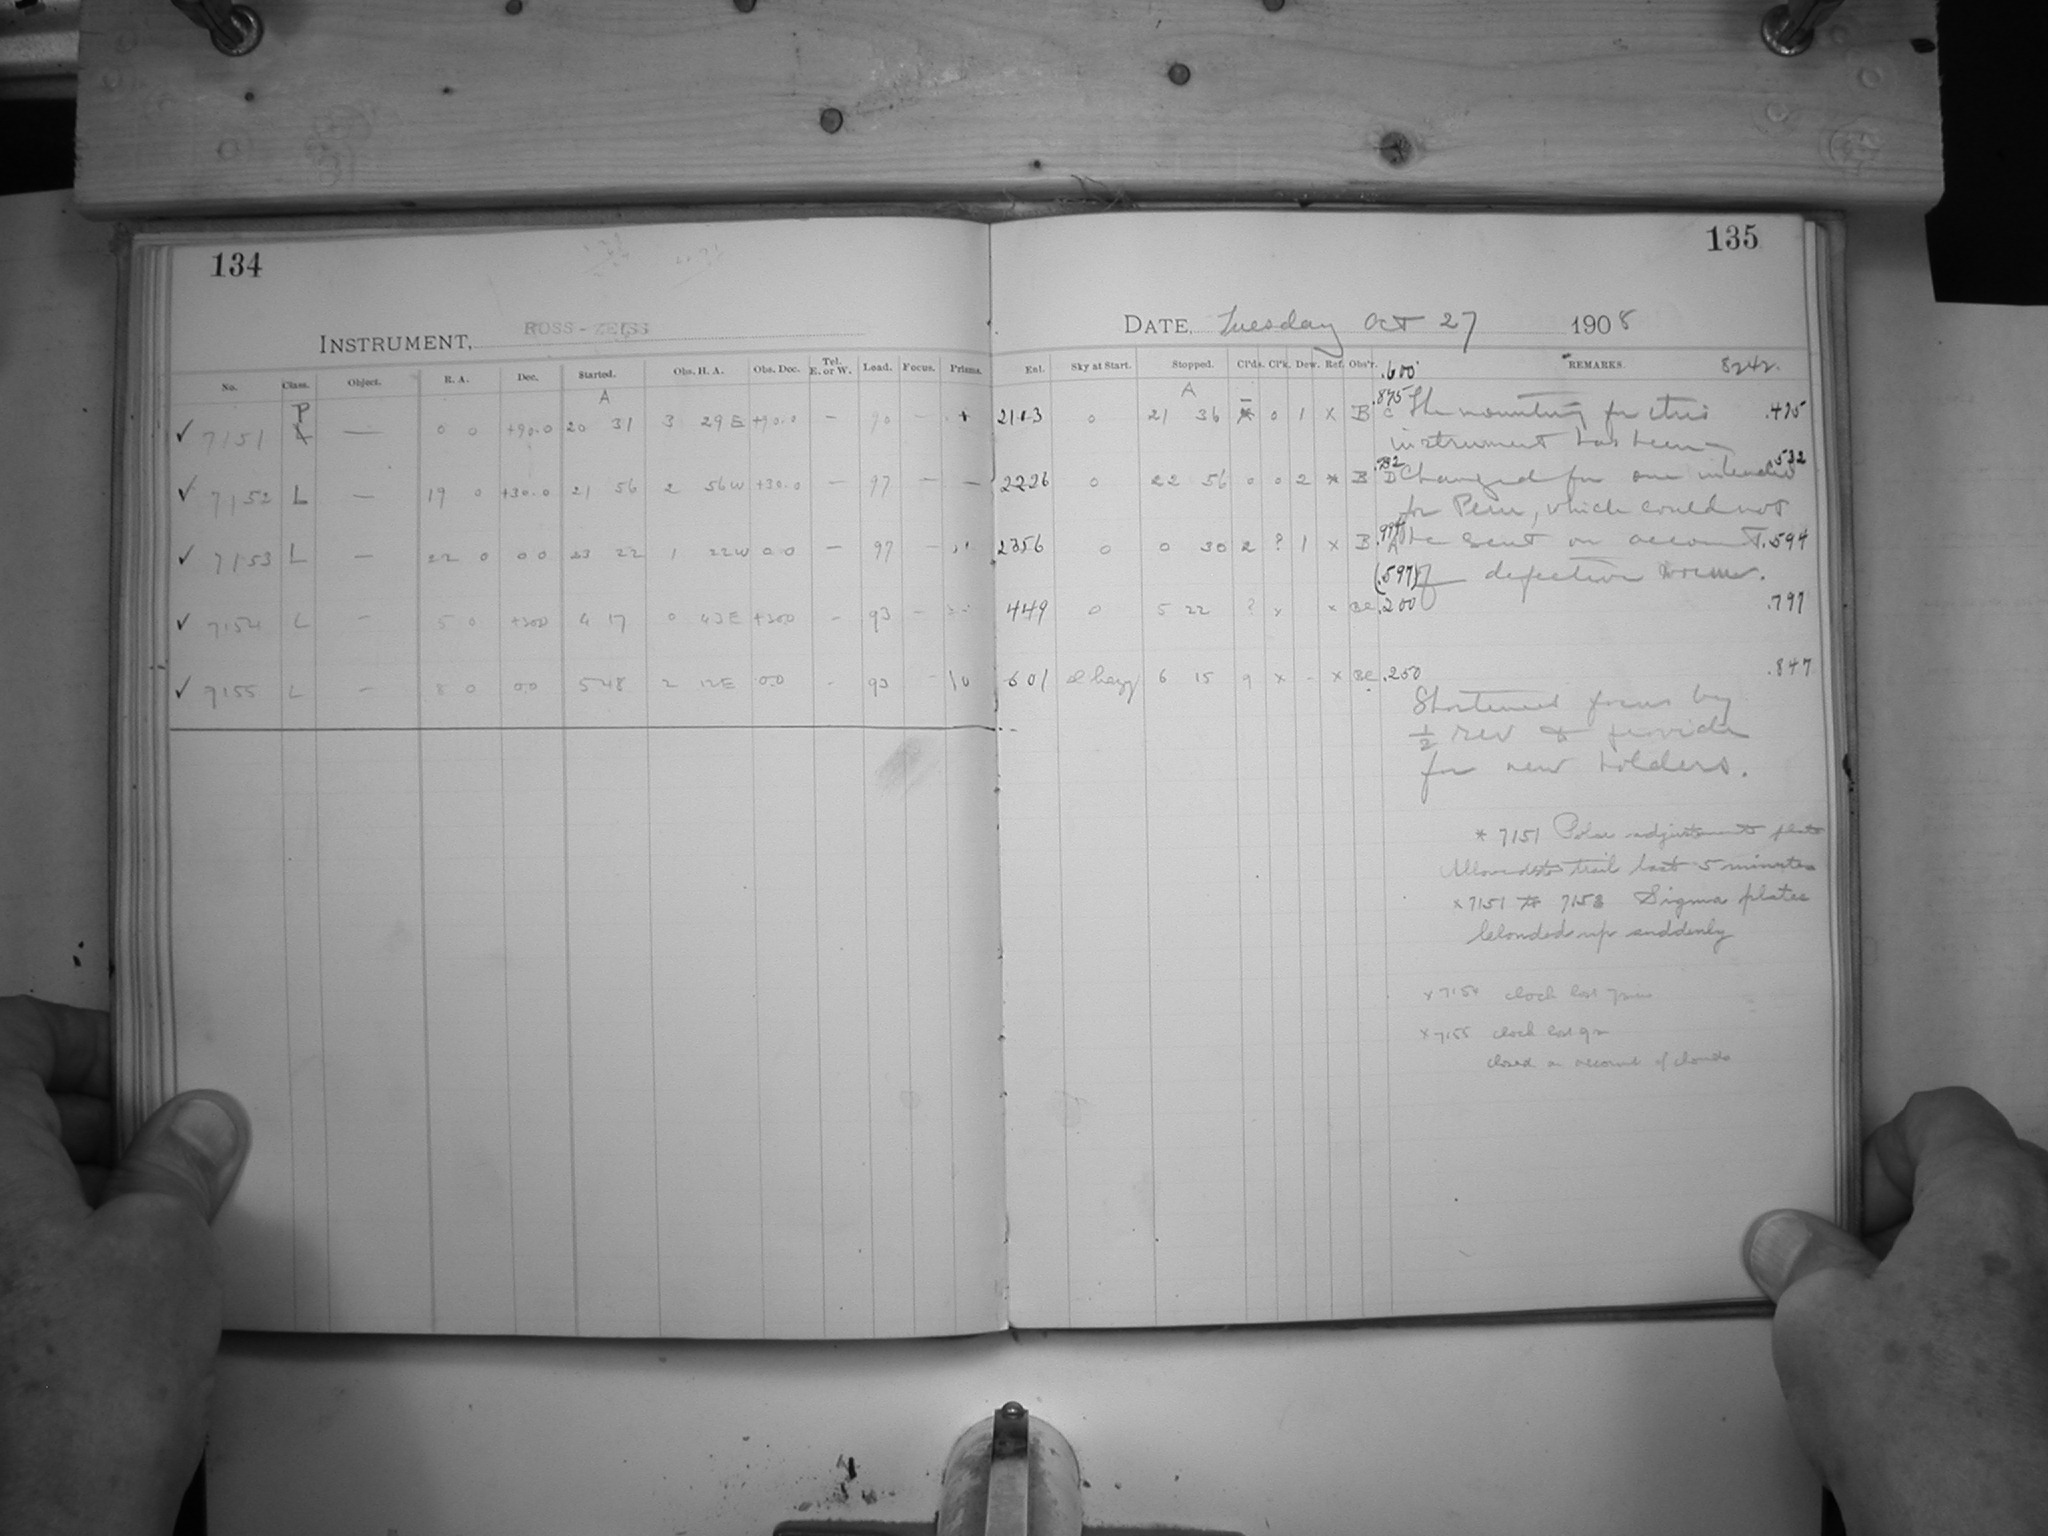 134
INSTRUMENT, ROSS-ZEISS
No. Class. Object. R. A. Dec. Started. Obs. H. A. Obs. Dec. Tel. E. or W. Load. Focus. Prisms.
A
P
✓ 7151 — 0 0 +90.0 20 31 3 29 E +90.0 — 90 — +
✓ 7152 L — 19 0 +30.0 21 56 2 56 W +30.0 — 97 — —
✓ 7153 L — 22 0 0 0 23 22 1 22 W 0 0 — 97 —
✓ 7154 L — 5 0 +300 4 17 0 43 E +300 - 93 -
✓ 7155 L — 8 0 00 5 48 2 12 E 00 - 93 -
135
DATE, Tuesday Oct 27 1908
Enl. Sky at Start. Stopped. Cl'ds. Cl'k. Dew. Ref. Obs'r. REMARKS. 8242.
.600
A
2103 0 21 36 0 1 x B .875 C The mounting for this .475
instrument has been
2226 0 22 56 0 0 2 * B .932 D Changed for one intended .532
for Peru, which could not
2356 0 0 30 2 ? 1 x B A be sent on account .594
(.597) of defective worm.
449 0 5 22 ? x x BC .200 .797
601 hazy 6 15 9 x - x BC .250 .847
Shortened focus by
1/2 rev to provide
for new holders.
* 7151 Polar adjustment plate
Allowed to trail last 5 minutes
x 7151 to 7153 Sigma plates
Clouded up suddenly
x 7154 clock lost 7 min
x 7155 clock lost 9m
closed on account of clouds